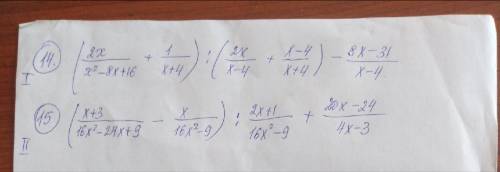 I 14. (2x/(x²-8x+16) + 1/(x+4)) : (2x/(x-4) + (x-4)/(x+4)) - (8x-31)/(x-4)
II 15 ((x+3)/(16x²-24x+9) - x/(16x²-9)) : (2x+1)/(16x²-9) + (20x-24)/(4x-3)